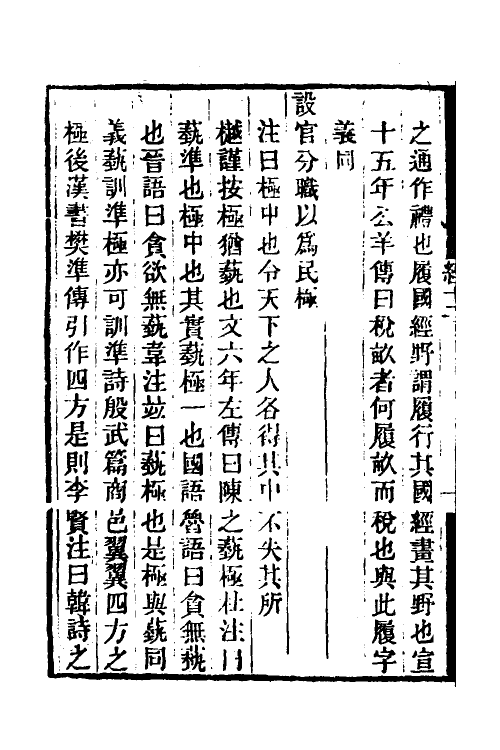 之通作禮也履國經野謂履行其國經畫其野也宣
十五年公羊傳曰稅畝者何履畝而稅也與此履字
義同
設官分職以爲民極
注曰極中也令天下之人各得其中不失其所
樾謹按極猶蓺也文六年左傳曰陳之蓺極杜注曰
蓺準也極中也其實蓺極一也國語魯語曰貪無蓺
也晉語曰貪欲無蓺韋注竝曰蓺極也是極與蓺同
義蓺訓準極亦可訓準詩殷武篇商邑翼翼四方之
極後漢書樊準傳引作四方是則李賢注曰韓詩之